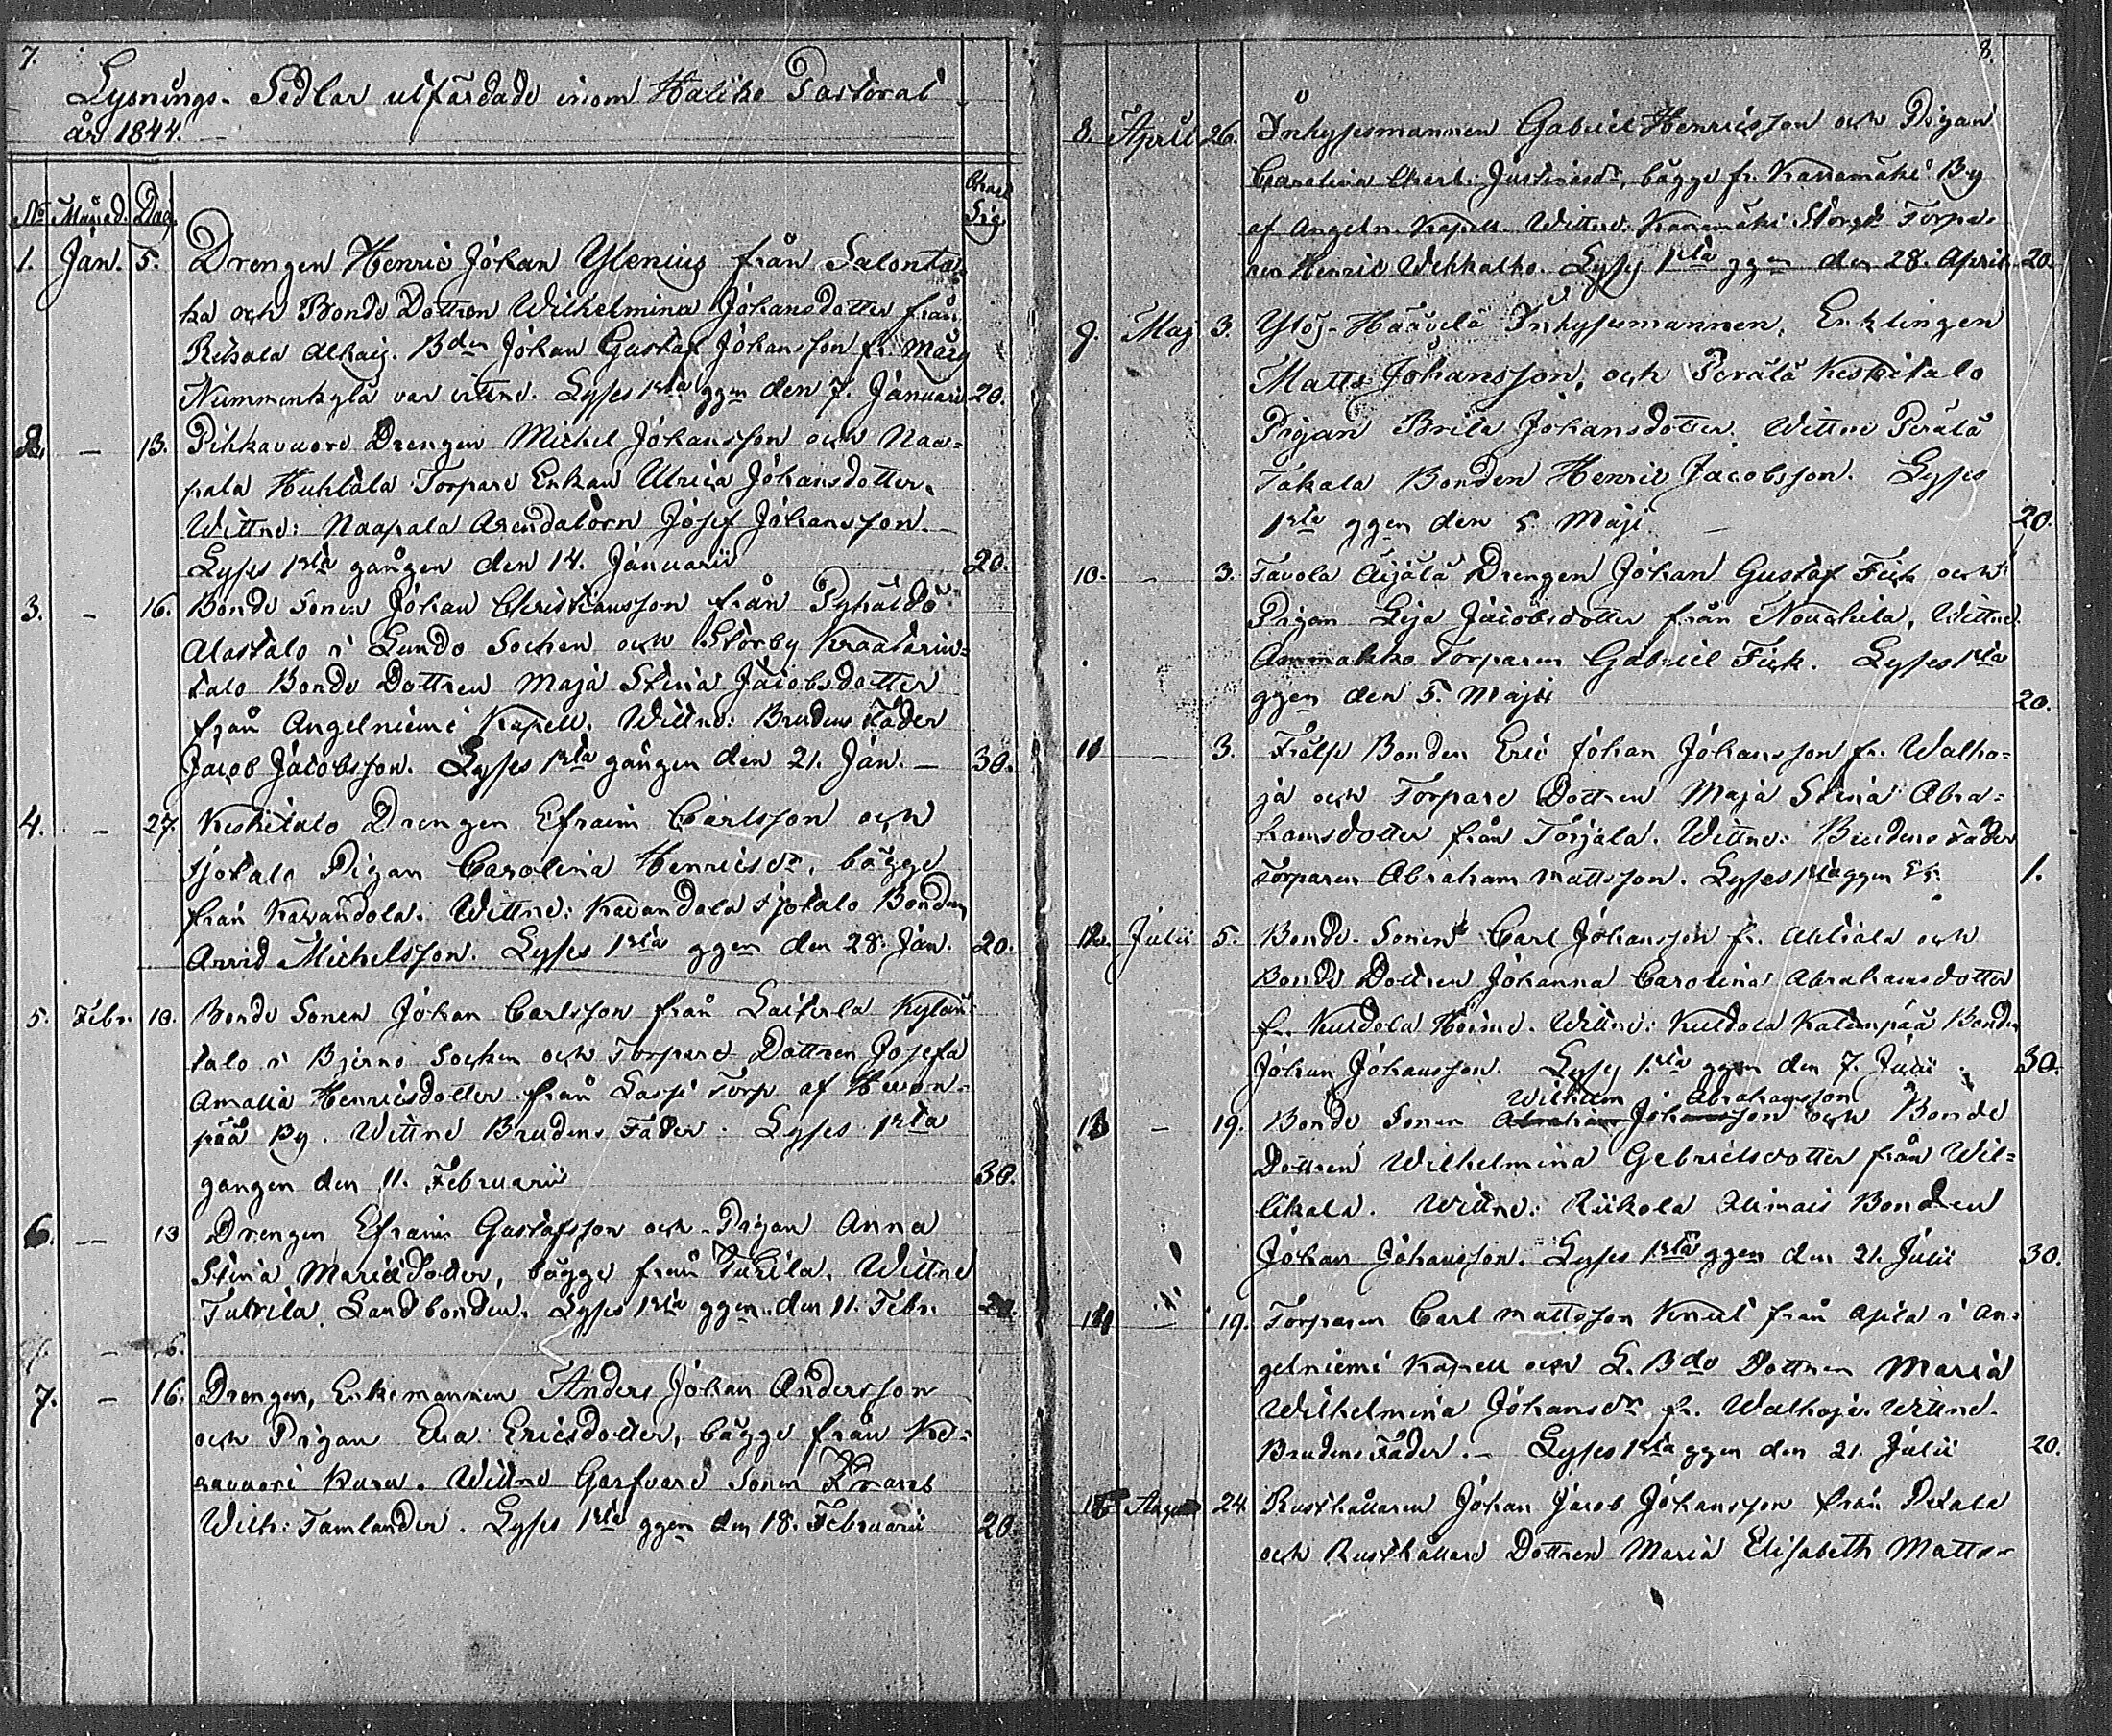 7.
Lysnings-Sedlar utfärdade inom Haliko Pastorat
år 1844.
No. Månad. Dag. Chart. Sig.
1. Jan. 5. Drengen Henric Johan Ylenius från Salonta-
ka och Bonde Dottren Wilhelmina Johansdotter från
Rikala Alhais. Bden Johan Gustaf Johansson fr. Märy
Nummenkylä var vittne. Lyses 1sta ggen den 7. Januarii 20.
2. — 13. Pihkavuore Drengen Michel Johansson och Naa-
pala Huhtala Torpare Enkan Ulrica Johansdotter.
Wittne: Naapala Arendatorn Josef Johansson.
Lyses 1sta gången den 14. Januarii 20.
3. — 16. Bonde Sonen Johan Christiansson från Pyhäldö
Alastalo i Lundo Sochen och Storby Kraatarin-
talo Bonde Dottren Maja Stina Jacobsdotter
från Angelniemi Kapell. Wittne: Brudens Fader
Jacob Jacobsson. Lyses 1sta gången den 21. Jan. — 30.
4. — 27. Keskitalo Drengen Efraim Carlsson och
Sjotalo Pigan Carolina Henricsdr, bägge
från Kavandola. Wittne: Kavandola Sjotalo Bonden
Arvid Michelsson. Lyses 1sta ggen den 28. Jan. 20.
5. Febr. 10. Bonde Sonen Johan Carlsson från Laiterla Kylän-
talo i Bjerno Socken och Torpare Dottren Josefa
Amalia Henricsdotter från Lassi Torp af Hevon-
pää By. Wittne Brudens Fader. Lyses 1sta
gangen den 11. Februarii 30.
6. — 13 Drengen Efraim Gustafsson och Pigan Anna
Stina Mariædotter, bägge från Turila. Wittne
Turila Landbonden. Lyses 1sta ggen den 11. Febr. 20.
7. — 16. Drengen, Enkemannen Anders Johan Andersson
och Pigan Eva Ericsdotter, bägge från Ke-
ravuori Kuru. Wittne Garfvare Sonen Frans
Wilh: Tamlander. Lyses 1sta ggen den 18. Februarii 20.
8.
8. April 26. Inhysesmannen Gabriel Henricsson och Pigan
Carolina Charl: Justinasdr, bägge fr. Kanamäki By
af Angeln. Kapell. Wittne: Kanamäki Storgd Torpa-
ren Henric Wehkalho. Lyses 1sta ggen den 28. April. 20.
9. Maj 3. Ylös-Häävelä Inhysesmannen, Enklingen
Matts Johansson, och Perälä Keskitalo
Pigan Brita Johansdotter. Wittne Perälä
Takala Bonden Henric Jacobsson. Lyses
1sta ggen den 5. Maji. — 20.
10. — 3. Tavola Äijälä Drengen Johan Gustaf Fisk och
Pigan Lisa Jacobsdotter från , Wittne
Torparen Gabriel Fisk. Lyses 1sta
ggen den 5. Maji 20.
11 — 3. Frälse Bonden Eric Johan Johansson fr. Walho-
ja och Torpare Dottren Maja Stina Abra-
hamsdotter från Torjala. Wittne: Brudens Fader
Torparen Abraham Mattsson. Lyses 1sta ggen 5. 1.
12. Julii 5. Bonde-Sonen Carl Johansson fr. Ahtiala och
Bonde Dottren Johanna Carolina Abrahamsdotter
fr. Kuldola Heime. Wittne: Kuldola Katumpää Bonden
Johan Johansson. Lyses 1sta ggen den 7. Julii. 30.
Wilhelm Abrahamsson
13 — 19. Bonde Sonen Abraham Johansson och Bonde
Dottren Wilhelmina Gabrielsdotter från Wil-
likala. Wittne: Riikola Bonden
Johan Johansson. Lyses 1sta ggen den 21. Julii 30.
14 — 19. Torparen Carl Mattsson från Apila i An-
gelniemi Kapell och L. Bde Dottren Maria
Wilhelmina Johansdr fr. Walhoja. Wittne.
Brudens Fader. — Lyses 1sta ggen den 21. Julii 20.
15 Aug 24. Rusthållaren Johan Jacob Johansson från Pitala
och Rusthållare Dottren Maria Elisabeth Matts-